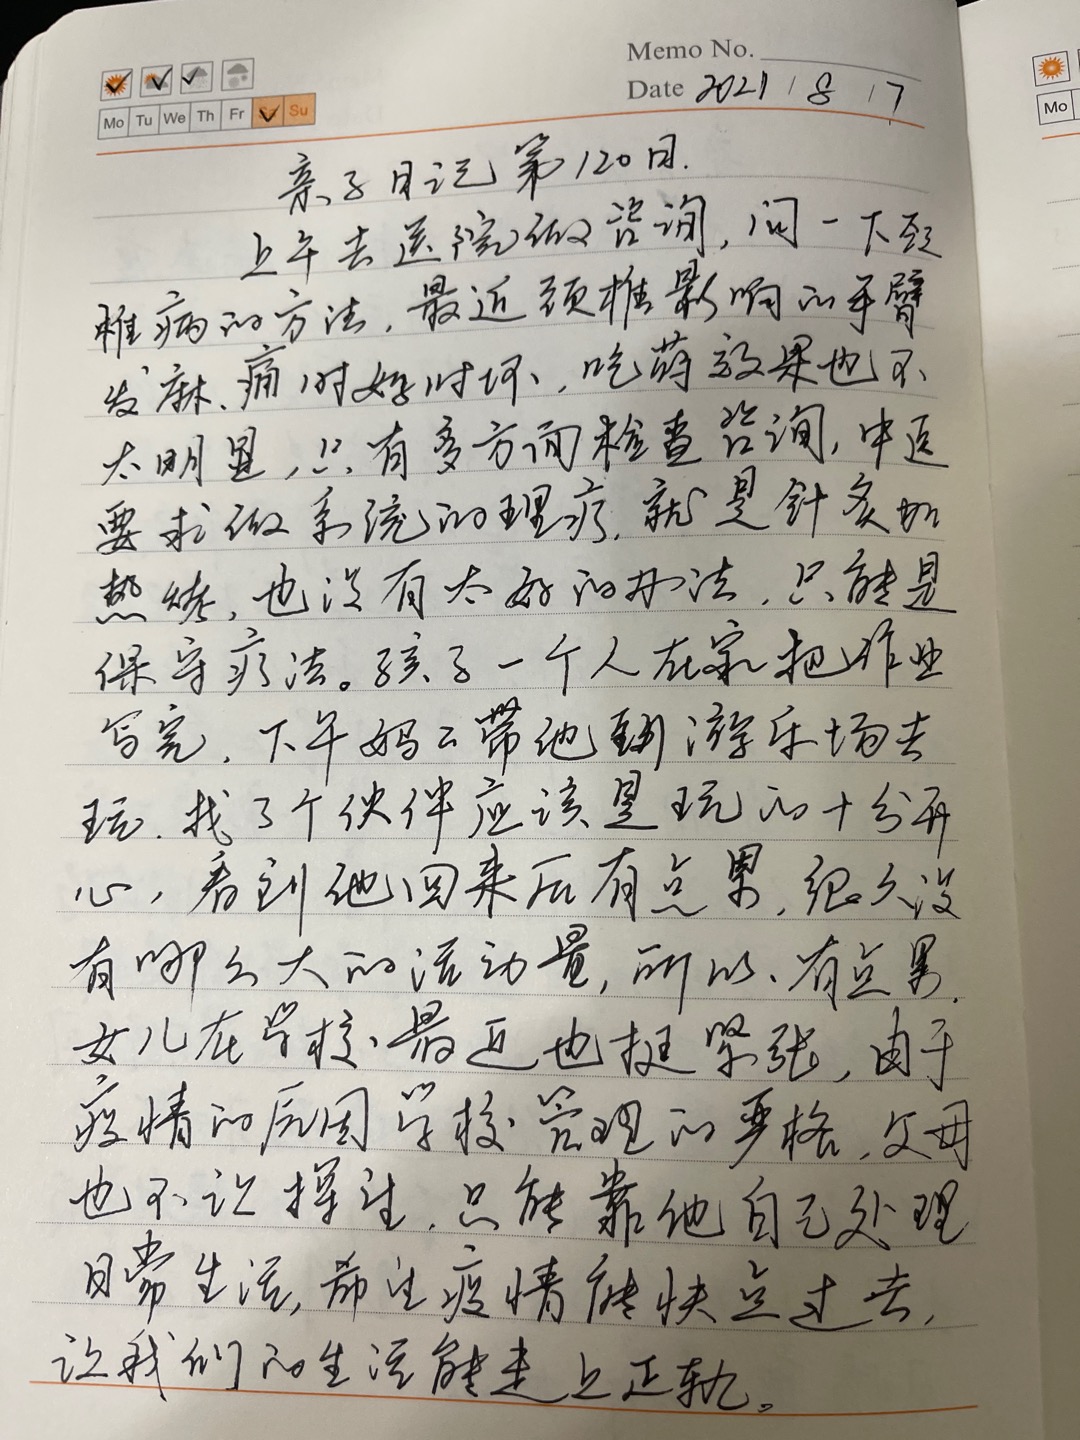 Memo No.
Mo Tu We Th Fr Sa Su
Date 2021/8/7
Mo
亲子日记第120日.
上午去医院做咨询,问一下颈
椎病的方法,最近颈椎影响的手臂
发麻、痛时好时坏,吃药效果也不
太明显,只有多方面检查咨询,中医
要求做系统的理疗,就是针灸加
热烤,也没有太好的办法,只能是
保守疗法。孩子一个人在家把作业
写完,下午妈々带他到游乐场去
玩.找了个伙伴应该是玩的十分开
心,看到他回来后有点累,很久没
有哪么大的活动量,所以、有点累.
女儿在学校最近也挺紧张,由于
疫情的原因学校管理的严格,父母
也不让探望,只能靠他自己处理
日常生活,希望疫情能快点过去,
让我们的生活能走上正轨。